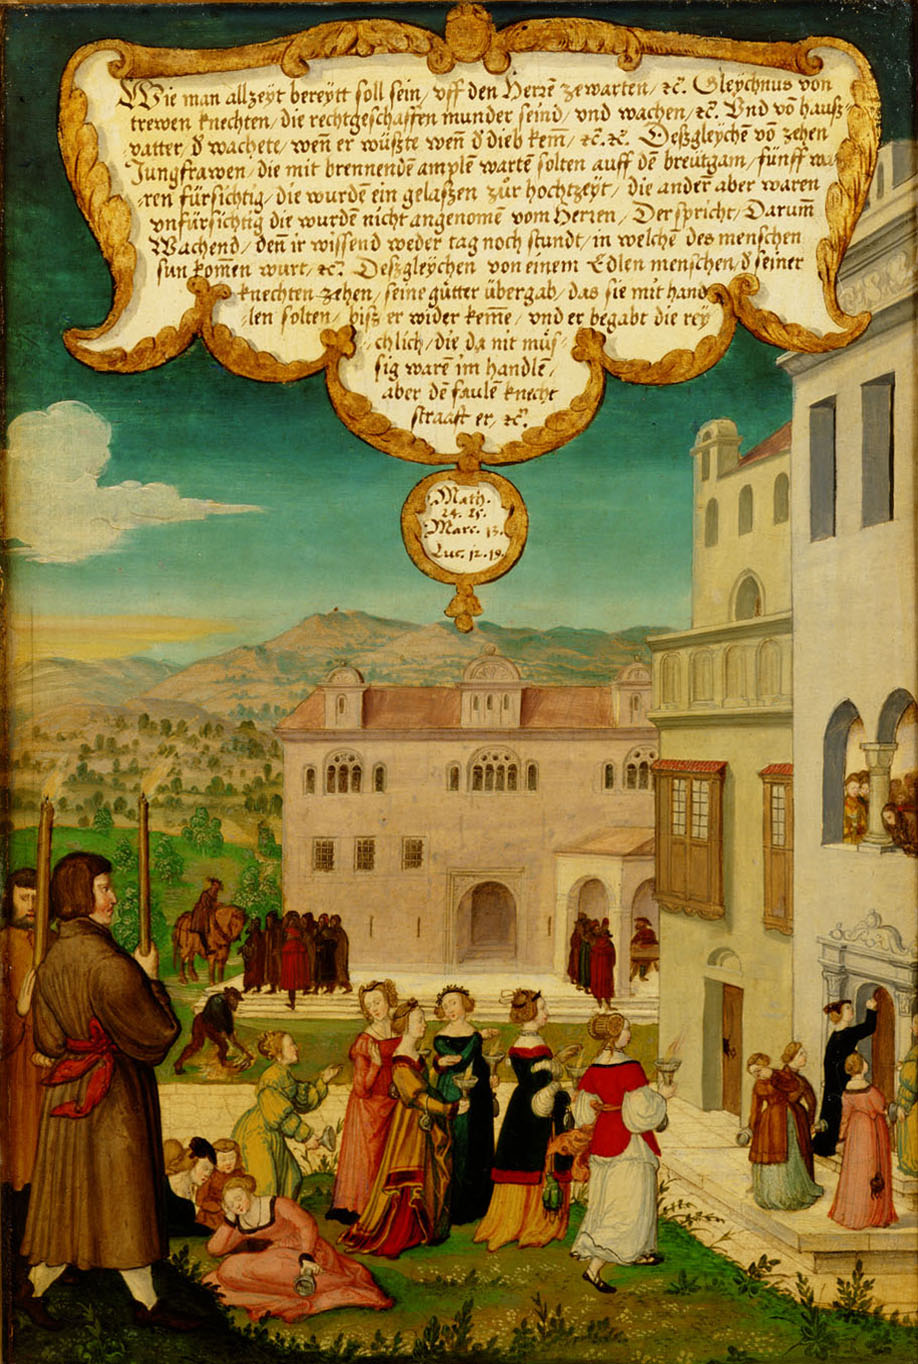 Wie man allzeyt bereytt soll sein / vff den Herrē zewarten / ꝛc̄. Gleychnus von
trewen knechten / die rechtgeschaffen munder seind / vnd wachen / ꝛc̄. Vnd vō hauß-
vatter / ď wachete / weñ er wüßte weñ ď dieb kem̄ / ꝛc̄. ꝛc̄. Deßgleychē vō zehen
Jungfrawen / die mit brennendē amplē wartē solten auff dē breütgam / fünff wa-
-ren fürsichtig / die wurdē ein gelaßen zůr hochtzeyt / die ander aber waren
vnfürsichtig die wurdē nicht angenomē vom Herren / Der spricht / Darum̄
Wachend / deñ ir wissend weder tag noch stundt / in welchē des menschen
sun kom̄en wurt / ꝛc̄. Deßgleychen von einem Edlen menschen / ď seiner
knechten zehen / seine gütter übergab / das sie mit hand-
-len solten / biß er wider kem̄e / vnd er begabt die rey-
-chlich / die da nit müs-
sig warē im handlē /
aber dē faulē knecht
straafft er / ꝛc̄.
Math.
24. 25.
Marc. 13.
Luc. 12. 19.